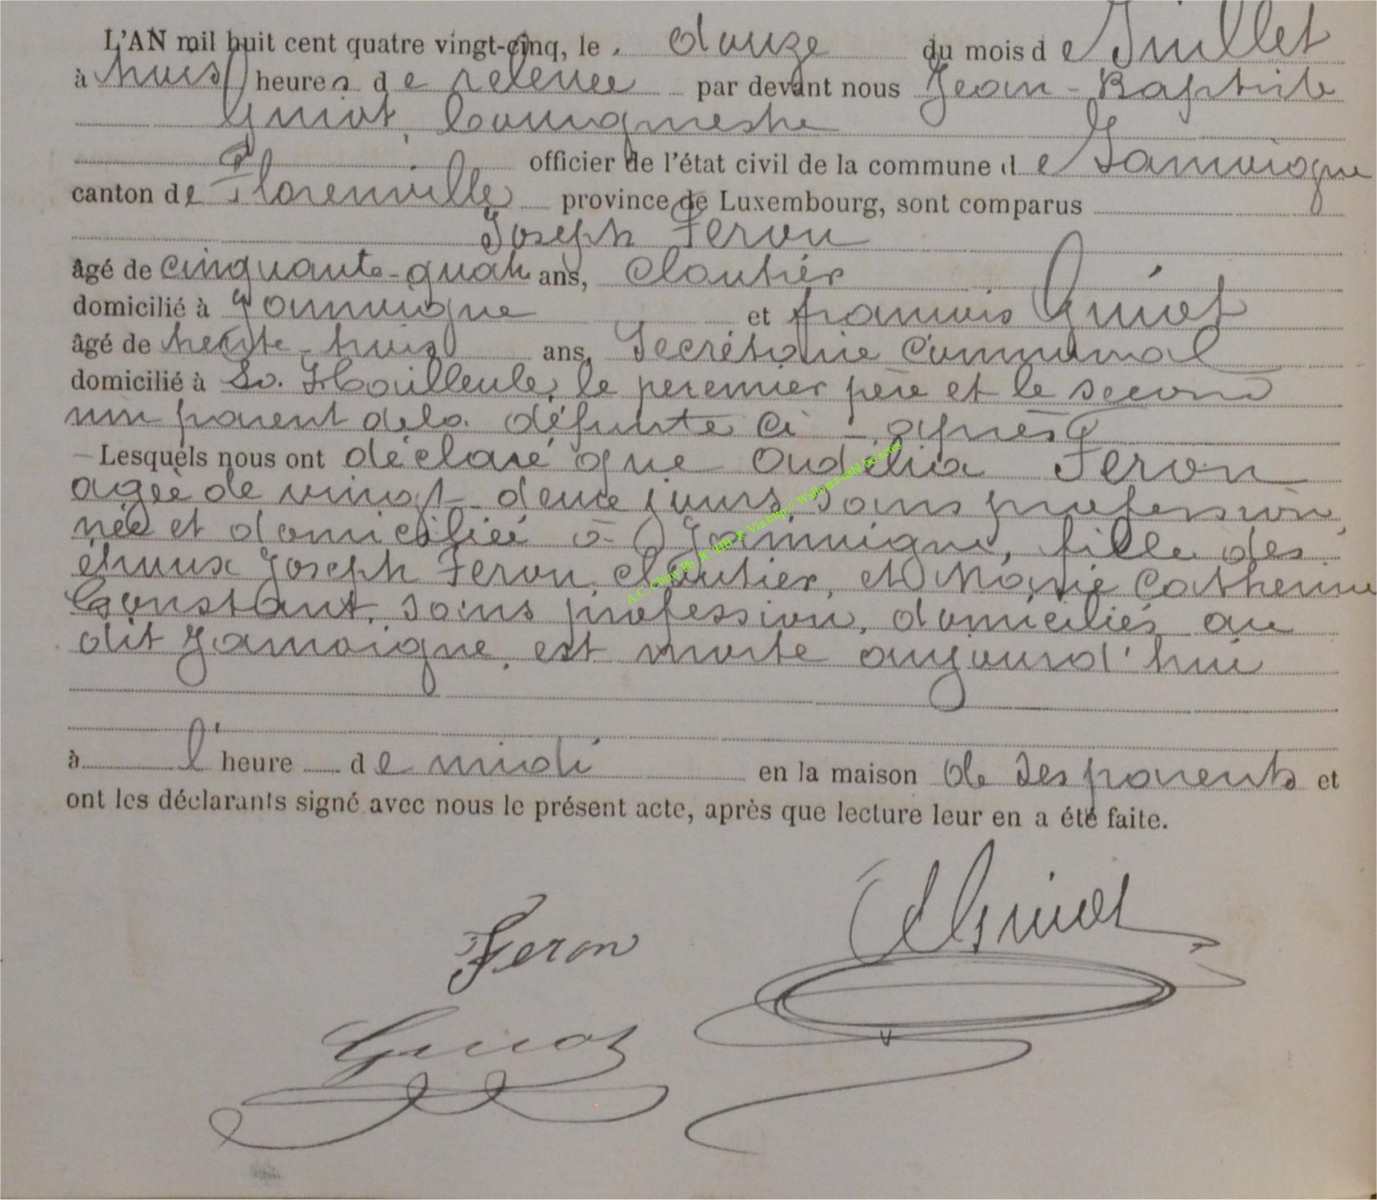 L'AN mil huit cent quatre vingt-cinq, le douze du mois de Juillet
à huit heures de relevée par devant nous Jean-Baptiste
Guiot, bourgmestre
officier de l'état civil de la commune de Jamoigne
canton de Florenville province de Luxembourg, sont comparus
Joseph Feron
âgé de cinquante-quatre ans, cloutier
domicilié à Jamoigne et françois Guiot
âgé de trente-huit ans, Secrétaire Communal
domicilié à le premier père et le second
un parent de la défunte ci-après
Lesquels nous ont déclaré que Feron
agée de vingt-deux jours, sans profession,
née et domiciliée à Jamoigne, fille des
époux Joseph Feron, cloutier, et Marie Catherine
Constant, sans profession, domiciliés au
dit Jamoigne, est morte aujourd'hui
à l'heure de midi en la maison de ses parents et
ont les déclarants signé avec nous le présent acte, après que lecture leur en a été faite.
Guiot
Feron
Guiot